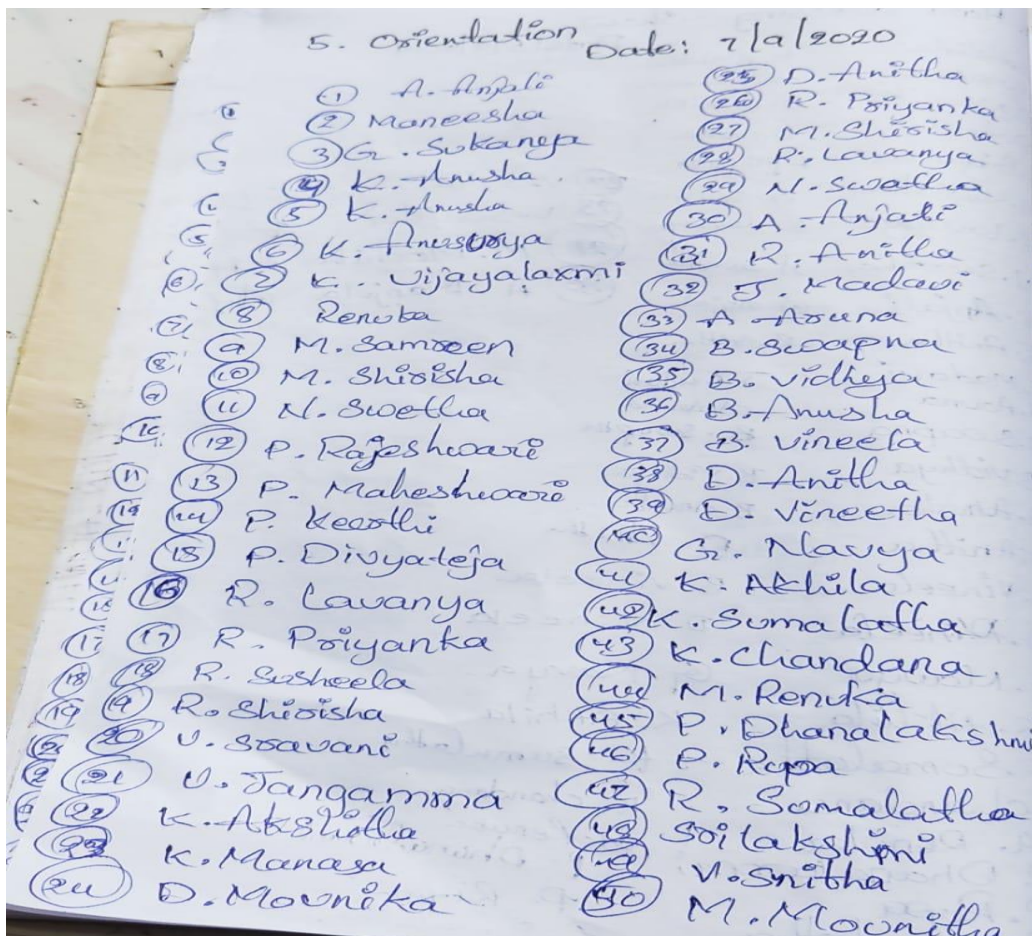 5. Orientation Date: 7/9/2020
1 A. Anjali
2 Maneesha
3 G. Sukaneja
4 K. Anusha
5 K. Anusha
6 K. Anusurya
7 K. Vijayalaxmi
8 Renuka
9 M. Samreen
10 M. Shirisha
11 N. Swetha
12 P. Rajeshwari
13 P. Maheshwari
14 P. Keerthi
15 P. Divyateja
16 R. Lavanya
17 R. Priyanka
18 R. Susheela
19 R. Shirisha
20 V. Sravani
21 V. Jangamma
22 K. Akshitha
23 K. Manasa
24 D. Mounika
25 D. Anitha
26 R. Priyanka
27 M. Shirisha
28 R. Lavanya
29 N. Swatha
30 A. Anjali
31 R. Anitha
32 J. Madavi
33 A. Aruna
34 B. Swapna
35 B. Vidheja
36 B. Anusha
37 B. Vineela
38 D. Anitha
39 D. Vineetha
40 G. Navya
41 K. Akhila
42 K. Suma latha
43 K. Chandana
44 M. Renuka
45 P. Dhanalakishmi
46 P. Rupa
47 R. Somalatha
48 Sri lakshmi
49 V. Snitha
50 M. Mounitha